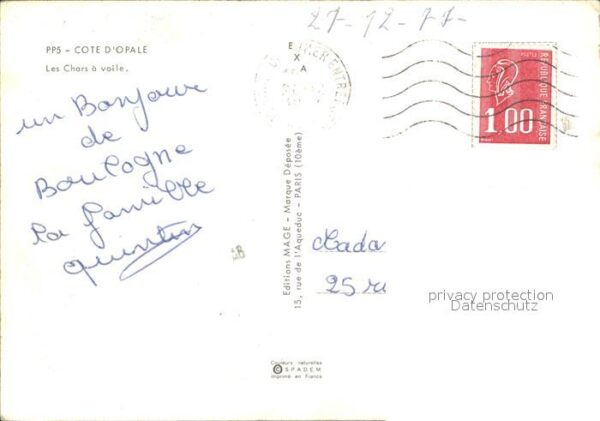 27-12-77-
PP5 - COTE D'OPALE
Les Chars à voile.
un Bonjour
de
Boulogne
la famille
quintin
E
X
A
Editions MAGE - Marque Déposée
15, rue de l'Aqueduc - PARIS (10ème)
REPUBLIQUE FRANÇAISE
1,00
Mada
25 ru
privacy protection
Datenschutz
Couleurs naturelles
© SPADEM
Imprimé en France